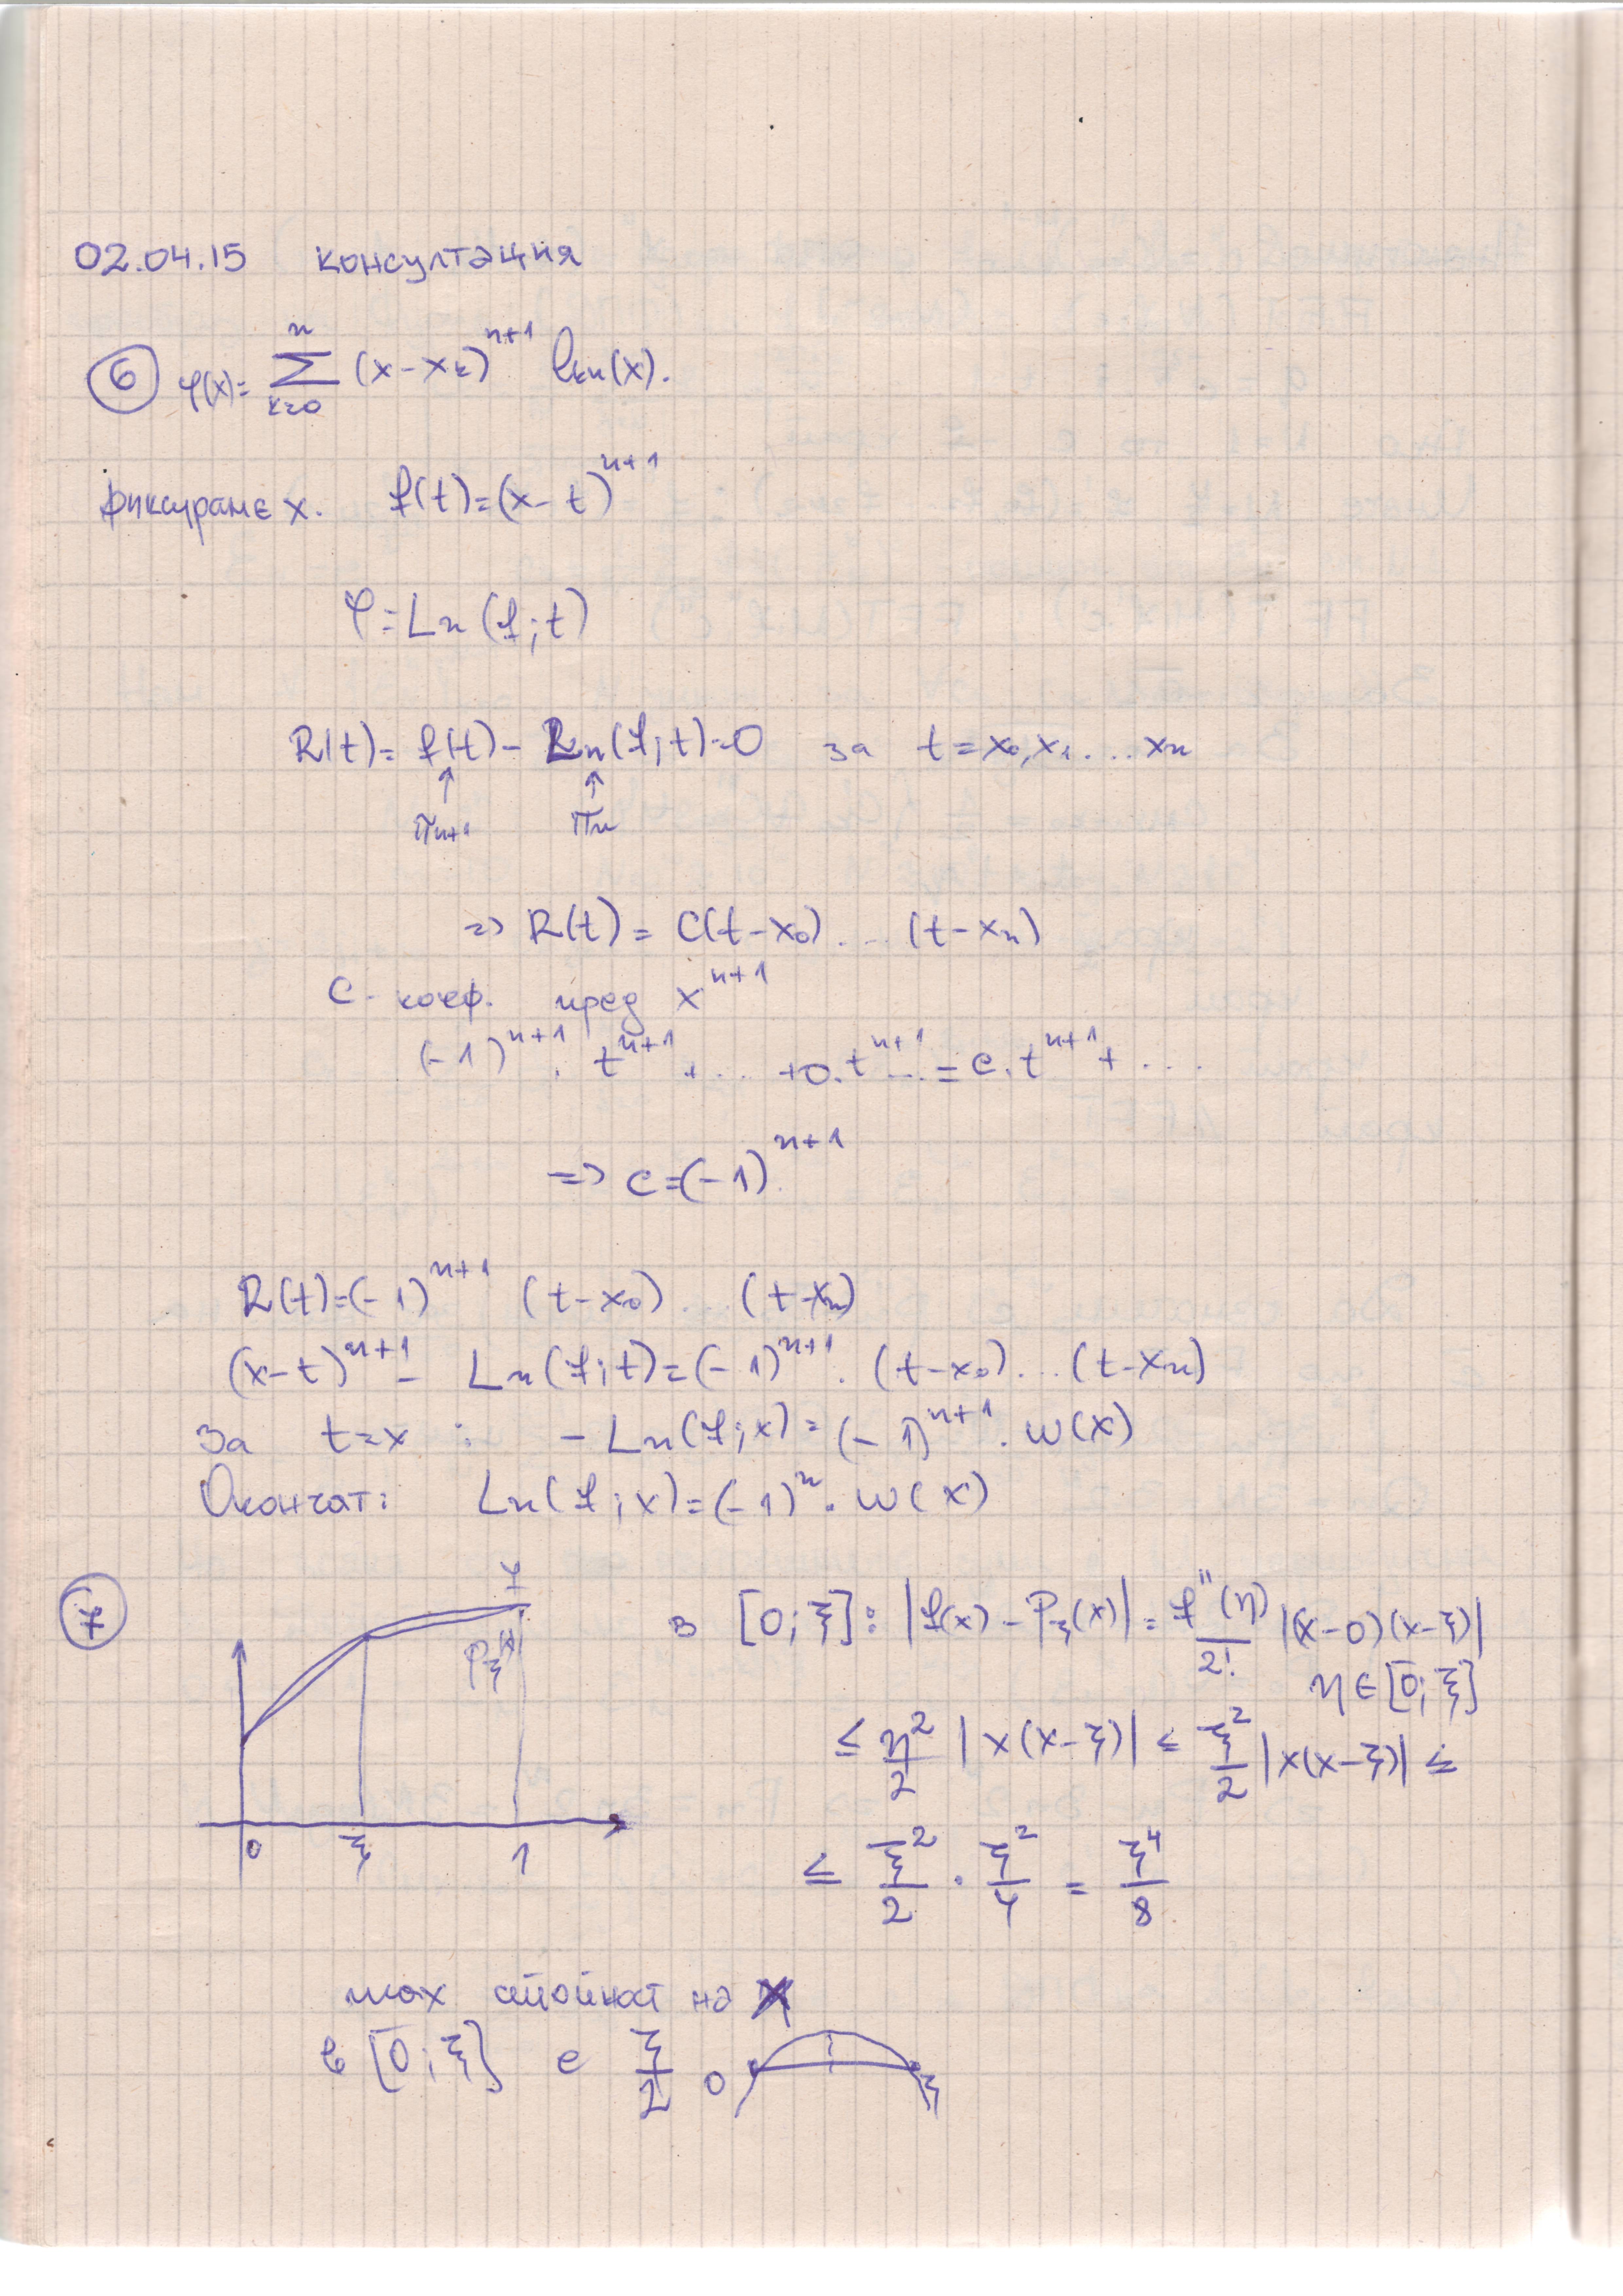 02.04.15 консултация
⑥ φ(x)= \sum_{k=0}^{n} (x-x_k)^{n+1} l_{kn}(x).
фиксираме x. f(t)=(x-t)^{n+1}
φ=Ln(f;t)
R(t)= f(t)- Ln(f;t)=0 за t=x_0,x_1....x_n
↑ ↑
π_{n+1} π_n
=> R(t)= C(t-x_0)... (t-x_n)
C- коеф. пред x^{n+1}
(-1)^{n+1}. t^{n+1}+... +0.t^{n+1}...=c.t^{n+1}+...
=> c=(-1)^{n+1}
R(t)=(-1)^{n+1} (t-x_0)... (t-x_n)
(x-t)^{n+1} - Ln(f;t)=(-1)^{n+1}. (t-x_0)...(t-x_n)
За t=x : -Ln(f;x)=(-1)^{n+1}. w(x)
Окончат: Ln(f;x)=(-1)^n. w(x)
⑦ в [0;ξ]: |f(x)-P_ξ(x)|= \frac{f''(η)}{2!} |(x-0)(x-ξ)|
η∈[0;ξ]
P_ξ
≤ \frac{η^2}{2} |x(x-ξ)| ≤ \frac{ξ^2}{2} |x(x-ξ)| ≤
0 ξ 1
≤ \frac{ξ^2}{2} . \frac{ξ^2}{4} = \frac{ξ^4}{8}
max стойност на
в [0;ξ] е \frac{ξ}{2} 0 ξ